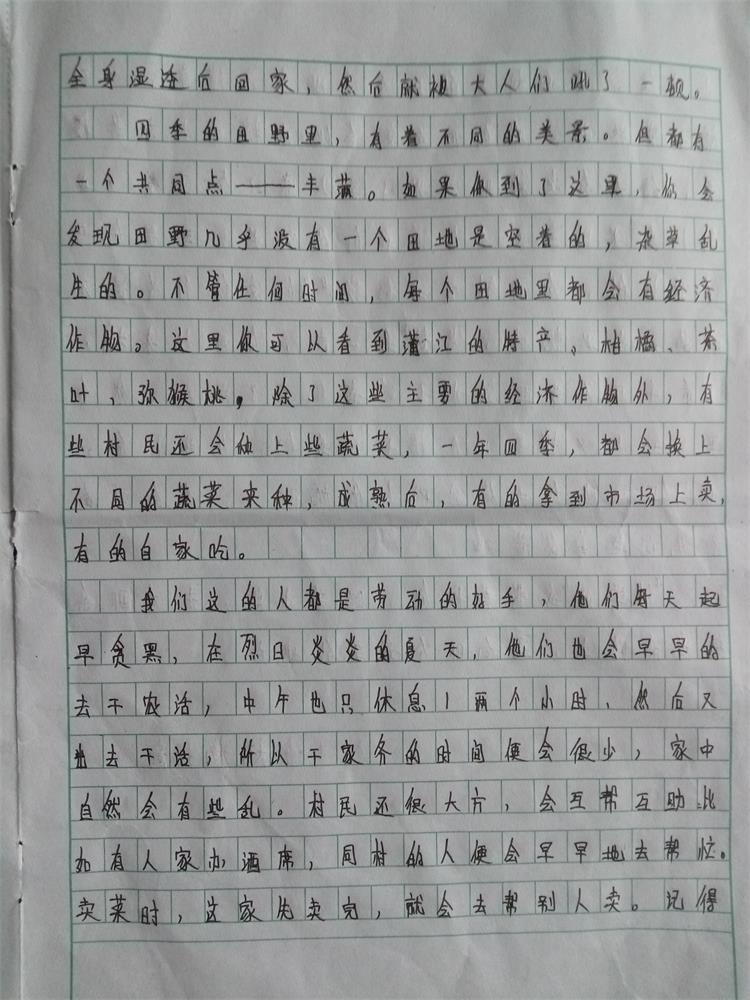 全身湿透后回家，然后就被大人们吼了一顿。
四季的田野里，有着不同的美景。但都有
一个共同点——丰满。如果你到了这里，你会
发现田野几乎没有一个田地是空着的，杂草乱
生的。不管任何时间，每个田地里都会有经济
作物。这里你可以看到蒲江的特产、柑橘、茶
叶、弥猴桃，除了这些主要的经济作物外，有
些村民还会种上些蔬菜，一年四季，都会换上
不同的蔬菜来种，成熟后，有的拿到市场上卖，
有的自家吃。
我们这的人都是劳动的好手，他们每天起
早贪黑，在烈日炎炎的夏天，他们也会早早的
去干农活，中午也只休息1两个小时、然后又
出去干活，所以干家务的时间便会很少，家中
自然会有些乱。村民还很大方，会互帮互助比
如有人家办酒席，同村的人便会早早地去帮忙。
卖菜时，这家先卖完，就会去帮别人卖。记得